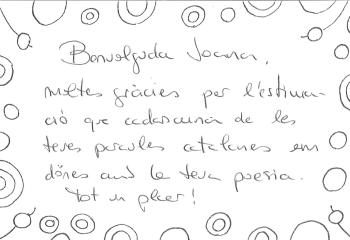 Benvolguda Joana,
moltes gràcies per l'estima-
ció que cadascuna de les
teves paraules catalanes em
dónes amb la teva poesia.
Tot un plaer!